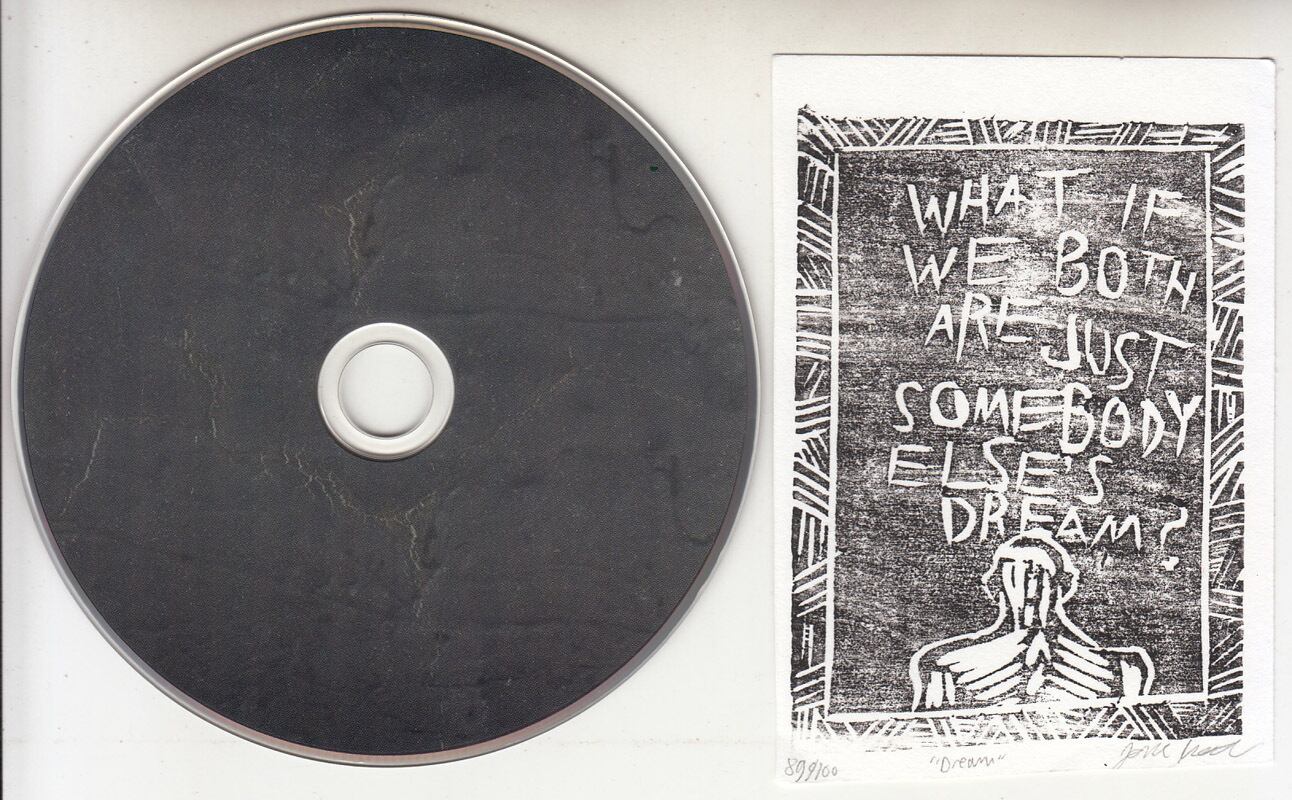 WHAT IF
WE BOTH
ARE JUST
SOMEBODY
ELSE'S
DREAM?
"Dream"